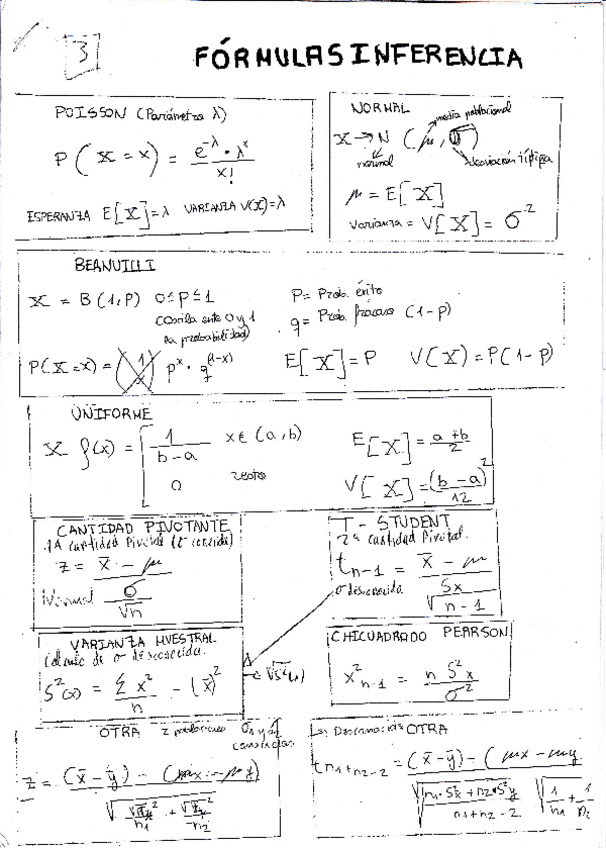 3
FÓRMULAS INFERENCIA
POISSON (Parámetro λ)
P(X = x) = e^-λ · λ^x / x!
ESPERANZA E[X]=λ VARIANZA V(X)=λ
NORMAL
media poblacional
X → N (μ, σ)
normal
desviación típica
μ = E[X]
Varianza = V[X] = σ²
BERNUILLI
X = B(1,P) 0≤P≤1
(Oscila entre 0 y 1
la probabilidad)
P = Prob. éxito
q = Prob. fracaso (1-P)
P(X=x) = (1 x) P^x · q^(1-x)
E[X]=P V(X)=P(1-P)
UNIFORME
X f(x) = 1 / b-a x∈(a,b)
0 resto
E[X] = a+b / 2
V[X] = (b-a)² / 12
CANTIDAD PIVOTANTE
1ª cantidad Pivotal (σ conocida)
z = x̄ - μ / σ/√n
Normal
T - STUDENT
2ª cantidad Pivotal.
t n-1 = x̄ - μ / Sx/√n-1
σ desconocida
VARIANZA MUESTRAL
Cálculo de σ desconocida.
S²(x) = Σ x² / n - (x̄)²
√S²(x)
CHICUADRADO PEARSON
x² n-1 = n S²x / σ²
OTRA 2 poblaciones
conocidas
z = (x̄ - ȳ) - (μx - μy)
n1 + n2
Desconocida OTRA
t n1+n2-2 = (x̄ - ȳ) - (μx - μy
√n1·S²x + n2·S²y / n1+n2-2 √1/n1 + 1/n